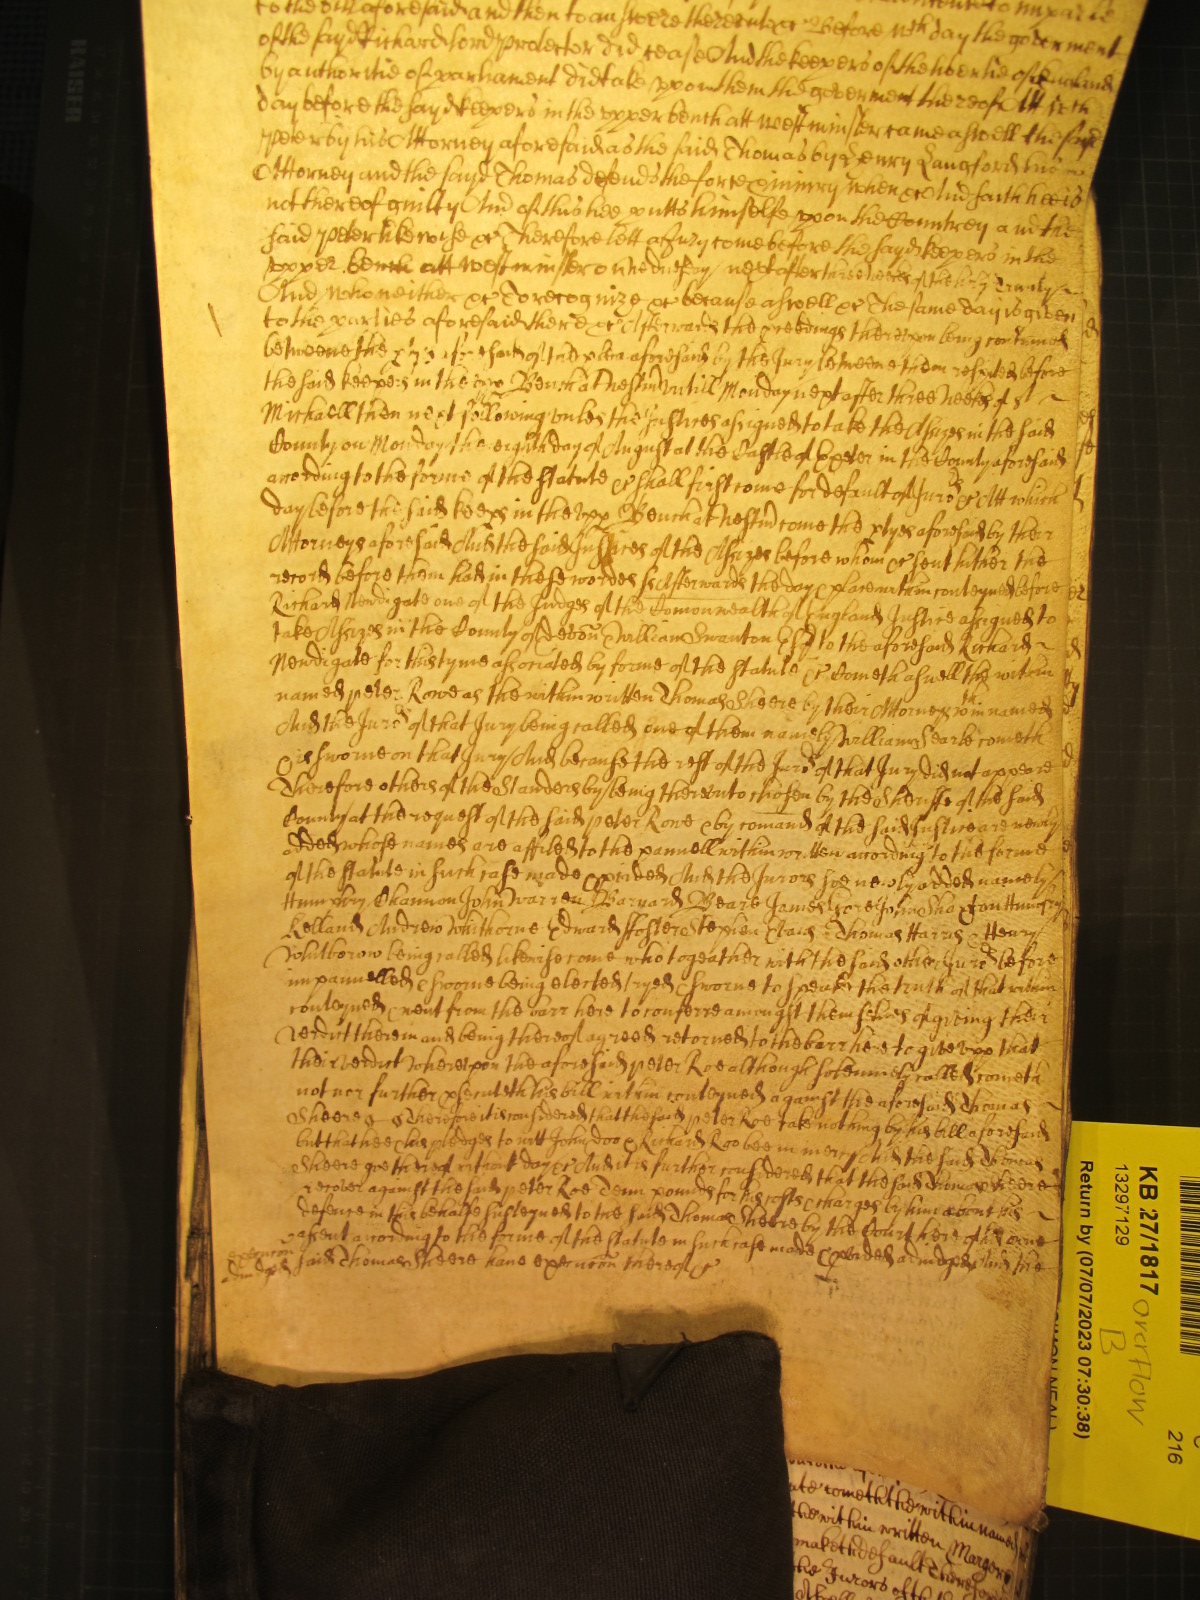 to the bill aforesaid and then to answere thereunto &c Before wch day the goverment
of the sayd Richard lord Protector did cease And the keepers of the liberties of England
by authoritie of parliament did take upon them the goverment thereof Att wch
day before the sayd keepers in the upper bench att westminster came aswell the sayd
Peter by his Attorney aforesaid as the said Thomas by Henry Langford his
Attorney and the sayd Thomas defends the force & iniury when &c And saith hee is
not thereof guilty And of this hee putts himselfe upon the Countrey and the
said Peter likewise &c Therefore lett a Jury come before the sayd keepers in the
upper bench att westminster on wednesday next after three weekes of the holy Trinity
And who neither &c To recognize &c because aswell &c The same day is given
to the parties aforesaid there &c Afterwards the proceedings thereupon being continued
betweene the ptyes aforesaid of the plea aforesaid by the Jury betweene them respited before
the said keepers in the upp Bench at Westm untill Monday next after three weekes of st
Michaell then next following unles the Justices assigned to take the Assizes in the said
County on Monday the eighth day of August at the Castle of Exeter in the County aforesaid
according to the forme of the statute &c shall first come for default of Jurors &c Att which
day before the said keeps in the upp Bench at Westm come the ptyes aforesaid by their
Attorneys aforesaid And the said Justices of the Assizes before whom &c sent hither the
record before them had in these wordes ss Afterwards the day & place within conteyned before
Richard Newdigate one of the Judges of the Comonwealth of England Justice assigned to
take Assizes in the County of Devon & William Swanton Esqr to the aforesaid Richard
Newdigate for this tyme associated by forme of the statute &c Cometh aswell the within
named Peter Rowe as the within written Thomas Sheere by their Attorneys wthin named
And the Jurors of that Jury being called one of them namely William Searle cometh
& is sworne on that Jury And because the rest of the Jurors of that Jury did not appeare
Therefore others of the Standers by being thereunto chosen by the Sheriffe of the said
County at the request of the said Peter Rowe & by comand of the said Justice are newly
added whose names are affiled to the pannell within written according to the forme
of the statute in such case made & pvided And the Jurors soe newly added namely
Humfry Channon John Warren Barnard Beare James Gore John Humfry
Kelland Andrew Whithorne Edward Foster Stephen Thomas Harris & Henry
Whitborow being called likewise come who togeather with the said other Juror before
impannelled & sworne being elected tryed & sworne to speake the truth of that within
conteyned went from the barr here to conferre amongst themselves of giving their
verdict therein and being thereof agreed returned to the barr here to give upp that
their verdict Whereupon the aforesaid Peter Roe although solemnely called cometh
not nor further psecuteth his bill within conteyned against the aforesaid Thomas
Sheere &c Therefore it is considered that the said Peter Roe take nothing by his bill aforesaid
but that hee & his pledges to witt John Doo & Richard Roo bee in mercy And the said Thomas
Sheere goe thereof without day &c And it is further considered that the said Thomas Sheere
recover against the said Peter Roe Tenn pounds for his costs & charges by him about his
defence in this behalfe susteyned to the said Thomas Sheere by the Court here of his owne
assent according to the forme of the statute in such case made & pvided adiudged And the
said Thomas Sheere have execucon thereof &c
KB 27/1817
13297129
overflow
B
Return by (07/07/2023 07:30:38)
216
cometh the within named
the within written Margery
maketh default Therefore
the Jurors of the